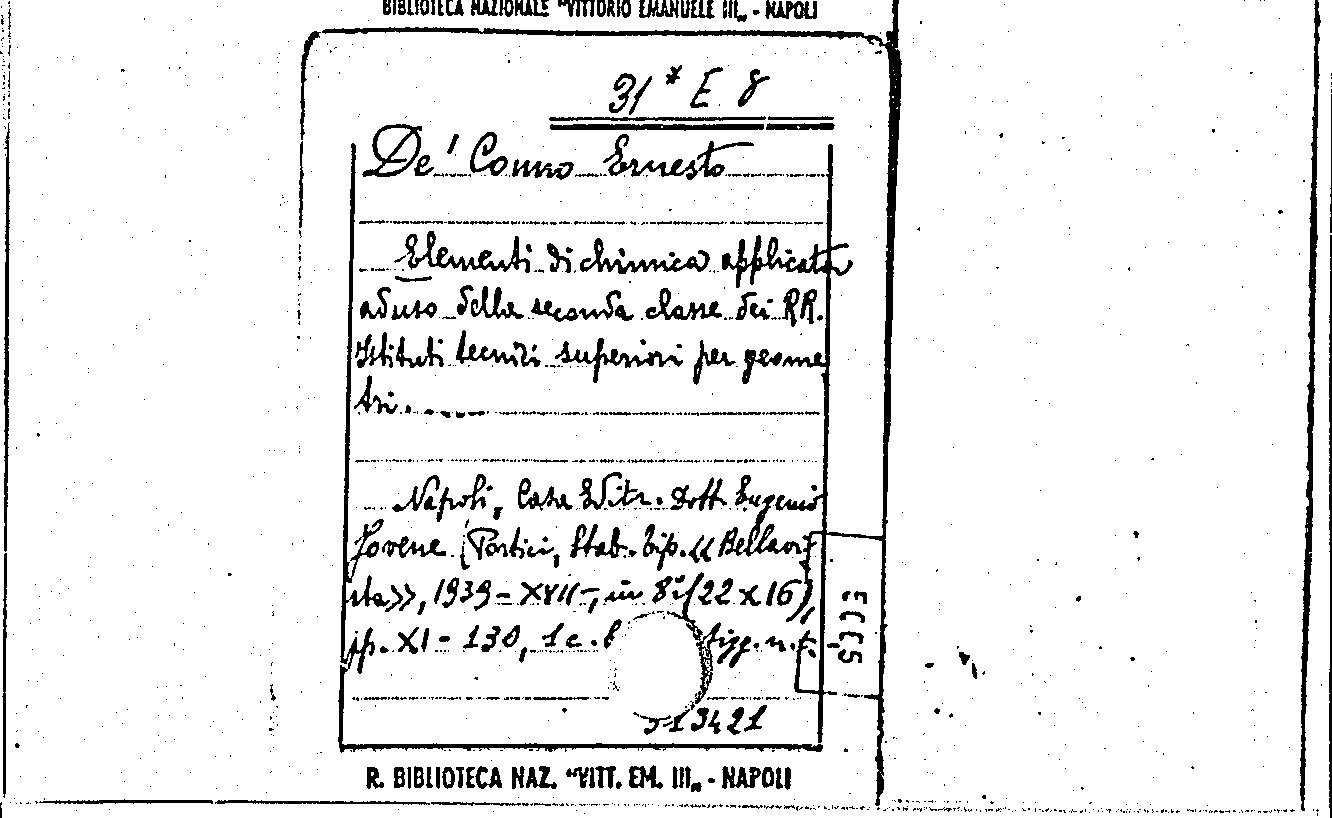 BIBLIOTECA NAZIONALE "VITTORIO EMANUELE III„ - NAPOLI
31* E 8
De' Conno Ernesto
Elementi di chimica applicata
ad uso della seconda classe dei RR.
Istituti tecnici superiori per geome
tri.
Napoli, Casa Editr. Dott. Eugenio
Jovene (Portici, Stab. Tip. << Bellavi-
sta>>, 1939-XVII-, in 8° (22 x 16),
pp. XI - 130, 1 c. figg. n. t.
513421
R. BIBLIOTECA NAZ. "VITT. EM. III„ - NAPOLI